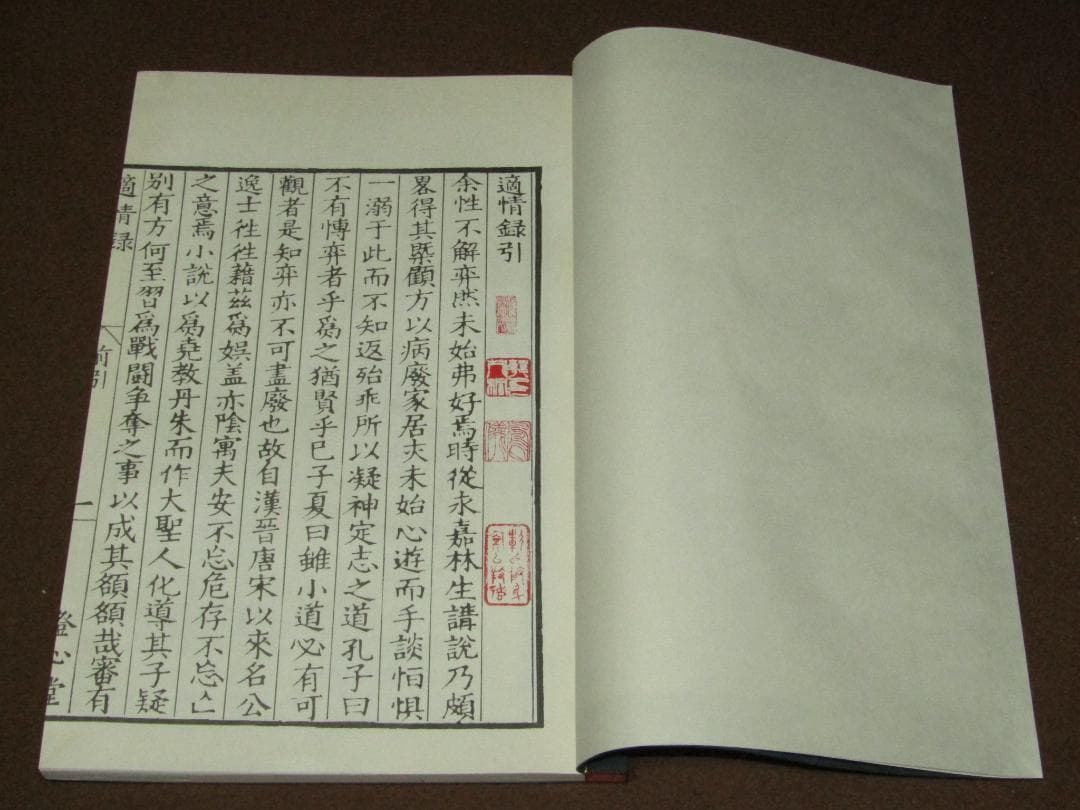 適情録引
余性不解弈然未始弗好焉時從永嘉林生講說乃頗
畧得其槩顧方以病廢家居夫未始心遊而手談怕惧
一溺于此而不知返殆乖所以凝神定志之道孔子曰
不有愽弈者乎爲之猶賢乎已子夏曰雖小道必有可
觀者是知弈亦不可盡廢也故自漢晉唐宋以來名公
逸士徃徃藉茲爲娯盖亦陰寓夫安不忘危存不忘亡
之意焉小說以爲堯教丹朱而作大聖人化導其子疑
別有方何至習爲戰闘争奪之事以成其額額哉審有
適情録
前引
一
澄心堂